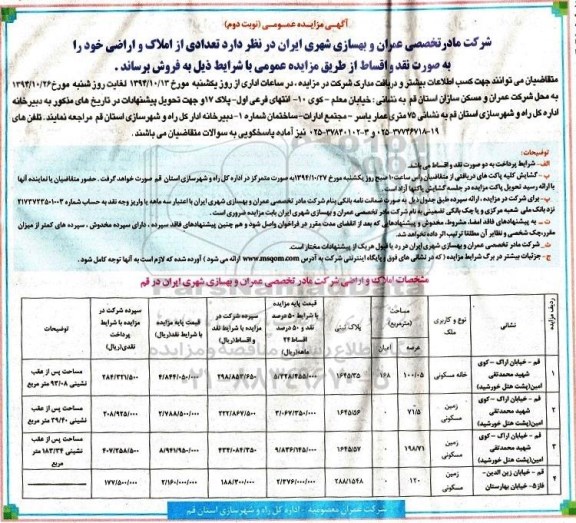 آگهی مزایده عمومی (نوبت دوم)
شرکت مادر تخصصی عمران و بهسازی شهری ایران در نظر دارد تعدادی از املاک و اراضی خود را
به صورت نقد و اقساط از طریق مزایده عمومی با شرایط ذیل به فروش برساند .
متقاضیان می توانند جهت کسب اطلاعات بیشتر و دریافت مدارک شرکت در مزایده ، در ساعات اداری از روز یکشنبه مورخ ۱۳۹۴/۱۰/۱۳ لغایت روز شنبه مورخ ۱۳۹۴/۱۰/۲۶
به محل شرکت عمران و مسکن سازان استان قم به نشانی : خیابان معلم -کوی ۱۰- انتهای فرعی اول- پلاک ۱۷ و جهت تحویل پیشنهادات در تاریخ های مذکور به دبیرخانه
اداره کل راه و شهرسازی استان قم به نشانی ۷۵ متری عمار یاسر - مجتمع ادارات- ساختمان شماره ۱- دبیرخانه اداره کل راه و شهرسازی استان قم مراجعه نمایند. تلفن های
۰۲۵-۳۷۷۴۶۷۱۸-۱۹ و ۳-۰۲۵-۳۷۸۳۰۱۰۲ نیز آماده پاسخگویی به سوالات متقاضیان می باشند .
توضیحات:
الف- شرایط پرداخت به دو صورت نقد و اقساط می باشد.
ب - گشایش کلیه پاکت های دریافتی از متقاضیان رأس ساعت ۱۰ صبح روز یکشنبه مورخ ۱۳۹۴/۱۰/۲۷ به صورت متمرکز در اداره کل راه و شهرسازی استان قم صورت خواهد گرفت . حضور متقاضیان یا نماینده آنها
با ارائه رسید تحویل پاکت مزایده در جلسه گشایش پاکتها آزاد است .
پ- برای شرکت در مزایده ، ارائه سپرده طبق جدول ذیل به صورت ضمانت نامه بانکی بنام شرکت مادر تخصصی عمران و بهسازی شهری ایران با اعتبار سه ماهه یا واریز وجه نقد به حساب شماره ۲۱۷۳۷۲۳۵۰۱۰۰۳
نزد بانک ملی شعبه مرکزی و یا چک بانکی تضمینی به نام شرکت مادر تخصصی عمران و بهسازی شهری ایران بابت مزایده ضروری است .
ت - به پیشنهادهای فاقد امضا، مشروط، مخدوش و پیشنهادهایی که بعد از انقضای مدت مقرر در فراخوان واصل شود و هم چنین پیشنهادهای فاقد سپرده ، دارای سپرده مخدوش ، سپرده های کمتر از میزان
مقرر، چک شخصی و نظایر آن مطلقا ترتیب اثر داده نخواهد شد.
ث - شرکت مادر تخصصی عمران و بهسازی شهری ایران در رد یا قبول هریک از پیشنهادات مختار است.
ج- جزئیات بیشتر در برگ شرایط مزایده ( که در نشانی های فوق و پایگاه اینترنتی شرکت به آدرس www.msqom.com ارائه می شود ) آورده شده که لازم است به آنها توجه کامل شود.
مشخصات املاک و اراضی شرکت مادر تخصصی عمران و بهسازی شهری ایران در قم
ردیف مزایده | نشانی | نوع و کاربری ملک | مساحت (مترمربع) عرصه | اعیان | پلاک ثبتی | قیمت پایه مزایده با شرایط ۵۰ درصد نقد و ۵۰ درصد اقساط ۲۴ ماهه(ریال) | سپرده شرکت در مزایده با شرایط نقد و اقساط(ریال) | قیمت پایه مزایده با شرایط نقد(ریال) | سپرده شرکت در مزایده با شرایط پرداخت نقدی(ریال) | توضیحات
۱ | قم - خیابان اراک - کوی شهید محمدتقی امین(پشت هتل خورشید) | خانه مسکونی | ۱۰۰/۰۵ | ۱۶۸ | ۱۶۴۵/۳۵ | ۵/۳۲۸/۴۵۵/۰۰۰ | ۲۹۸/۸۵۳/۶۵۰ | ۴/۸۴۴/۰۵۰/۰۰۰ | ۲۸۴/۳۲۱/۵۰۰ | مساحت پس از عقب نشینی ۹۳/۰۸ متر مربع
۲ | قم - خیابان اراک - کوی شهید محمدتقی امین(پشت هتل خورشید) | زمین مسکونی | ۷۱/۵ | ۰ | ۱۶۴۵/۵۶ | ۳/۰۶۷/۳۵۰/۰۰۰ | ۲۲۲/۸۶۷/۵۰۰ | ۲/۷۸۸/۵۰۰/۰۰۰ | ۲۰۸/۹۲۵/۰۰۰ | مساحت پس از عقب نشینی ۳۹/۴۰ متر مربع
۳ | قم - خیابان اراک - کوی شهید محمدتقی امین(پشت هتل خورشید) | زمین مسکونی | ۱۹۸/۷۱ | ۰ | ۱۶۴۵/۵۷ | ۹/۸۳۶/۱۴۵/۰۰۰ | ۴۳۴/۰۸۴/۳۵۰ | ۸/۹۴۱/۹۵۰/۰۰۰ | ۴۰۷/۲۵۸/۵۰۰ | مساحت پس از عقب نشینی ۱۸۳/۳۴ متر مربع
۴ | قم - خیابان زین الدین- فاز۵- خیابان بهارستان | زمین مسکونی | ۱۲۰ | ۰ | ۲۸۸/۱۵۴۸ | ۲/۳۷۶/۰۰۰/۰۰۰ | ۱۸۸/۳۰۰/۰۰۰ | ۲/۱۶۰/۰۰۰/۰۰۰ | ۱۷۷/۵۰۰/۰۰۰ | -
شرکت عمران معصومیه - اداره کل راه و شهرسازی استان قم